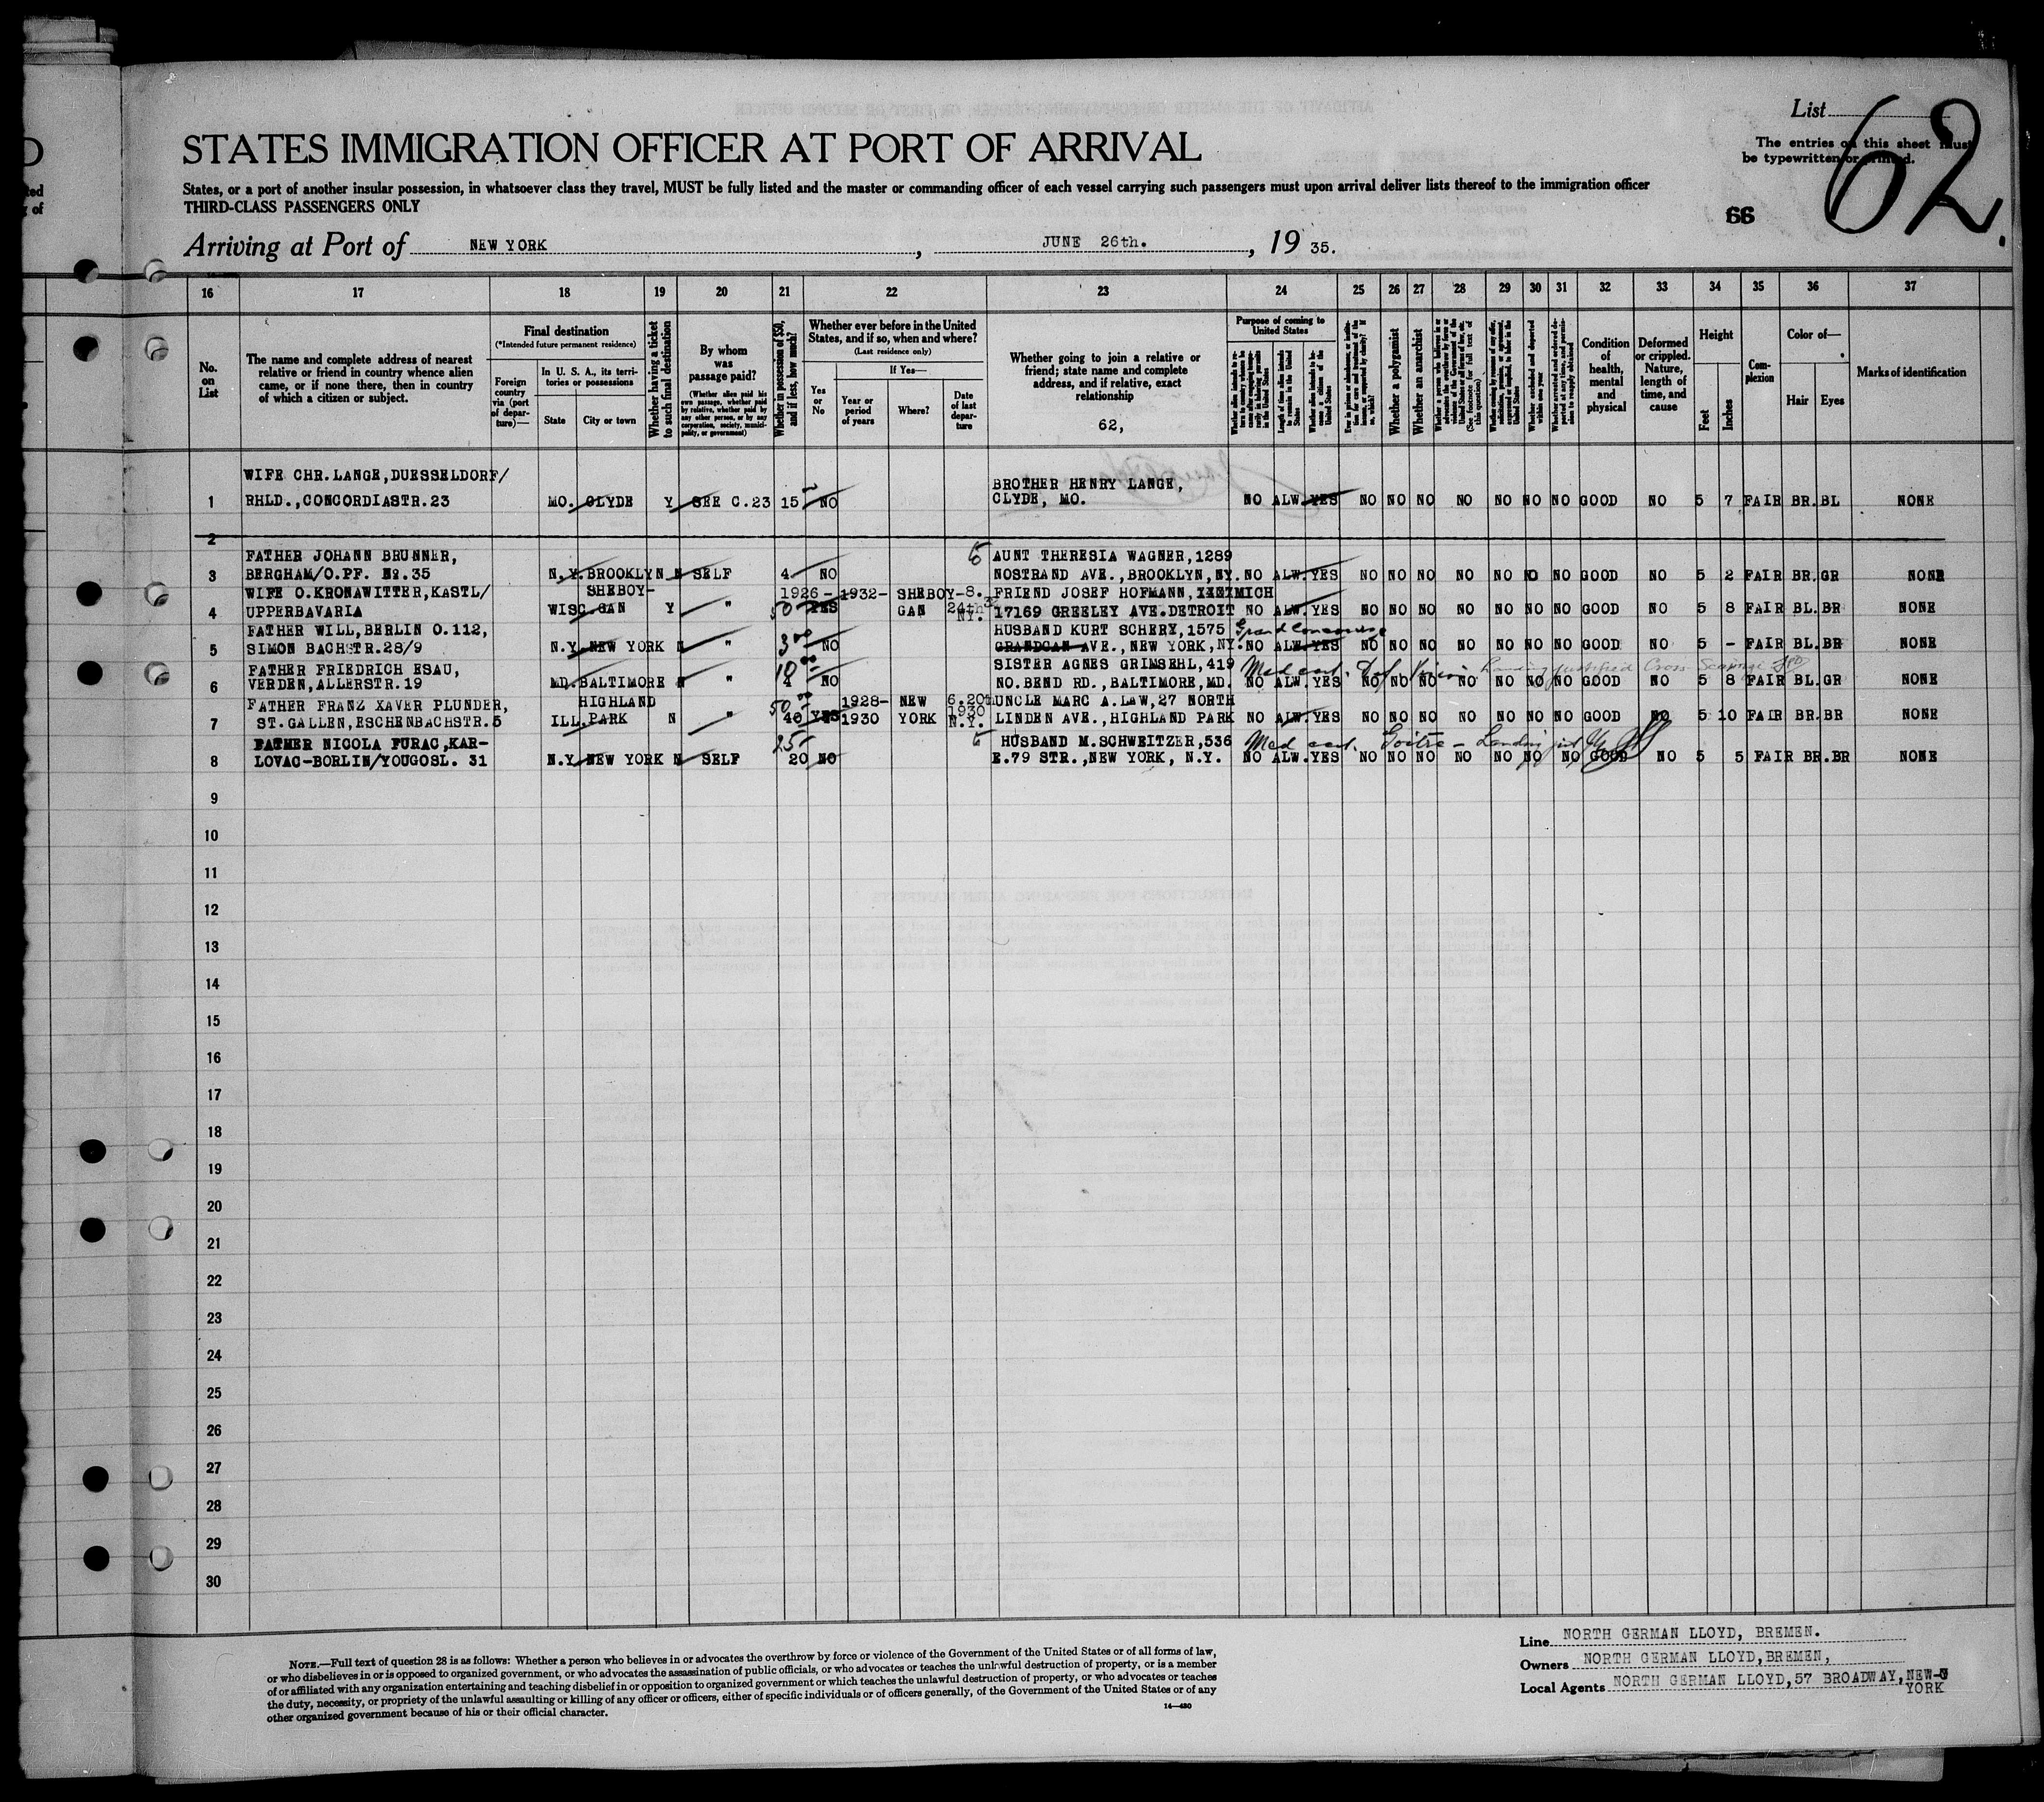 List 62.
STATES IMMIGRATION OFFICER AT PORT OF ARRIVAL
The entries on this sheet must
be typewritten or printed.
States, or a port of another insular possession, in whatsoever class they travel, MUST be fully listed and the master or commanding officer of each vessel carrying such passengers must upon arrival deliver lists thereof to the immigration officer
THIRD-CLASS PASSENGERS ONLY
66
Arriving at Port of NEW YORK , JUNE 26th. , 19 35.
16 17 18 19 20 21 22 23 24 25 26 27 28 29 30 31 32 33 34 35 36 37
No. on List
The name and complete address of nearest relative or friend in country whence alien came, or if none there, then in country of which a citizen or subject.
Final destination
(*Intended future permanent residence)
Foreign country via (port of departure)—
In U. S. A., its territories or possessions
State
City or town
Whether having a ticket to such final destination
By whom was passage paid?
(Whether alien paid his own passage, whether paid by relative, whether paid by any other person, or by any corporation, society, municipality, or government)
Whether in possession of $50, and if less, how much?
Whether ever before in the United States, and if so, when and where?
(Last residence only)
Yes or No
If Yes—
Year or period of years
Where?
Date of last departure
Whether going to join a relative or friend; state name and complete address, and if relative, exact relationship
62,
Purpose of coming to United States
Length of time alien intends to remain in the United States
Whether alien intends to become a citizen of the United States
Whether a polygamist
Whether an anarchist
Condition of health, mental and physical
Deformed or crippled. Nature, length of time, and cause
Height
Feet
Inches
Complexion
Color of—
Hair
Eyes
Marks of identification
WIFE CHR. LANGE,DUESSELDORF/ BROTHER HENRY LANGE,
1 RHLD.,CONCORDIASTR.23 MO. CLYDE Y SEE C.23 15 NO CLYDE, MO. NO ALW. YES NO NO NO NO NO NO NO GOOD NO 5 7 FAIR BR. BL NONE
2
FATHER JOHANN BRUNNER, AUNT THERESIA WAGNER,1289
3 BERGHAM/O.PF. No.35 N.Y. BROOKLYN N SELF 4 NO NOSTRAND AVE.,BROOKLYN,NY. NO ALW. YES NO NO NO NO NO NO NO GOOD NO 5 2 FAIR BR. GR NONE
WIFE O.KRONAWITTER,KASTL/ SHEBOY- 1926 - 1932- SHEBOY- 8. FRIEND JOSEF HOFMANN, MICH
4 UPPERBAVARIA WISC. GAN Y " 50 YES GAN 24th NY. 17169 GREELEY AVE.DETROIT NO ALW. YES NO NO NO NO NO NO NO GOOD NO 5 8 FAIR BL. BR NONE
FATHER WILL,BERLIN O.112, HUSBAND KURT SCHERY,1575 Grand Concourse
5 SIMON BACHSTR.28/9 N.Y. NEW YORK N " 300 NO GRANDCAN AVE.,NEW YORK,NY. NO ALW. YES NO NO NO NO NO NO NO GOOD NO 5 - FAIR BL. BR NONE
FATHER FRIEDRICH ESAU, 18 SISTER AGNES GRIMSEHL,419 Med cert. Def Vision Landing justified
6 VERDEN,ALLERSTR.19 MD. BALTIMORE N " 4 NO NO.BEND RD.,BALTIMORE,MD. NO ALW. YES NO NO NO NO NO NO NO GOOD NO 5 8 FAIR BL. GR NONE
FATHER FRANZ XAVER PLUNDER, HIGHLAND 50 1928- NEW 6.20th UNCLE MARC A.LAW,27 NORTH
7 ST.GALLEN,ESCHENBACHSTR.5 ILL. PARK N " 40 YES 1930 YORK 1930 N.Y. LINDEN AVE.,HIGHLAND PARK NO ALW. YES NO NO NO NO NO NO NO GOOD NO 5 10 FAIR BR. BR NONE
FATHER NICOLA FURAC,KAR- 25 HUSBAND M.SCHWEITZER,536 Med cert. Goitre - Landing
8 LOVAC-BORLIN/YOUGOSL. 31 N.Y. NEW YORK N SELF 20 NO E.79 STR.,NEW YORK, N.Y. NO ALW. YES NO NO NO NO NO NO NO GOOD NO 5 5 FAIR BR. BR NONE
9
10
11
12
13
14
15
16
17
18
19
20
21
22
23
24
25
26
27
28
29
30
NOTE.—Full text of question 28 is as follows: Whether a person who believes in or advocates the overthrow by force or violence of the Government of the United States or of all forms of law,
or who disbelieves in or is opposed to organized government, or who advocates the assassination of public officials, or who advocates or teaches the unlawful destruction of property, or is a member
of or affiliated with any organization entertaining and teaching disbelief in or opposition to organized government or which teaches the unlawful destruction of property, or who advocates or teaches
the duty, necessity, or propriety of the unlawful assaulting or killing of any officer or officers, either of specific individuals or of officers generally, of the Government of the United States or of any
other organized government because of his or their official character.
14—480
Line NORTH GERMAN LLOYD, BREMEN.
Owners NORTH GERMAN LLOYD,BREMEN,
Local Agents NORTH GERMAN LLOYD,57 BROADWAY,NEW-
YORK